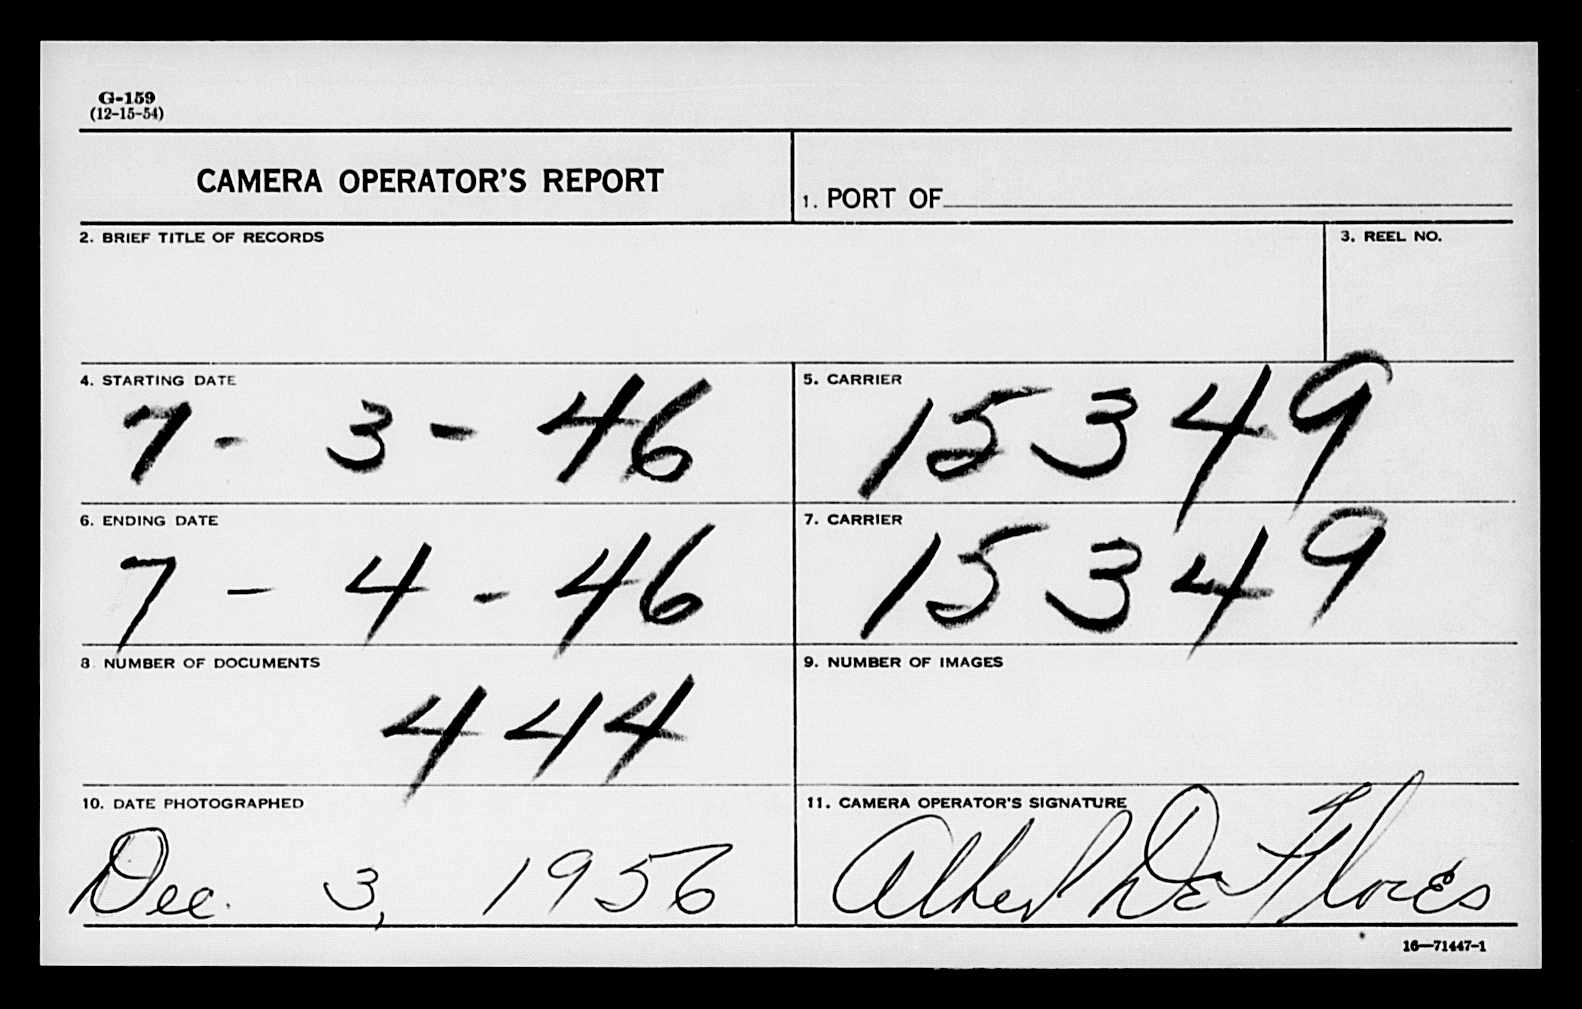 G-159
(12-15-54)
CAMERA OPERATOR'S REPORT
1. PORT OF
2. BRIEF TITLE OF RECORDS
3. REEL NO.
4. STARTING DATE
7 - 3 - 46
5. CARRIER
15349
6. ENDING DATE
7 - 4 - 46
7. CARRIER
15349
8. NUMBER OF DOCUMENTS
444
9. NUMBER OF IMAGES
10. DATE PHOTOGRAPHED
Dec. 3, 1956
11. CAMERA OPERATOR'S SIGNATURE
Albert De Flores
16—71447-1